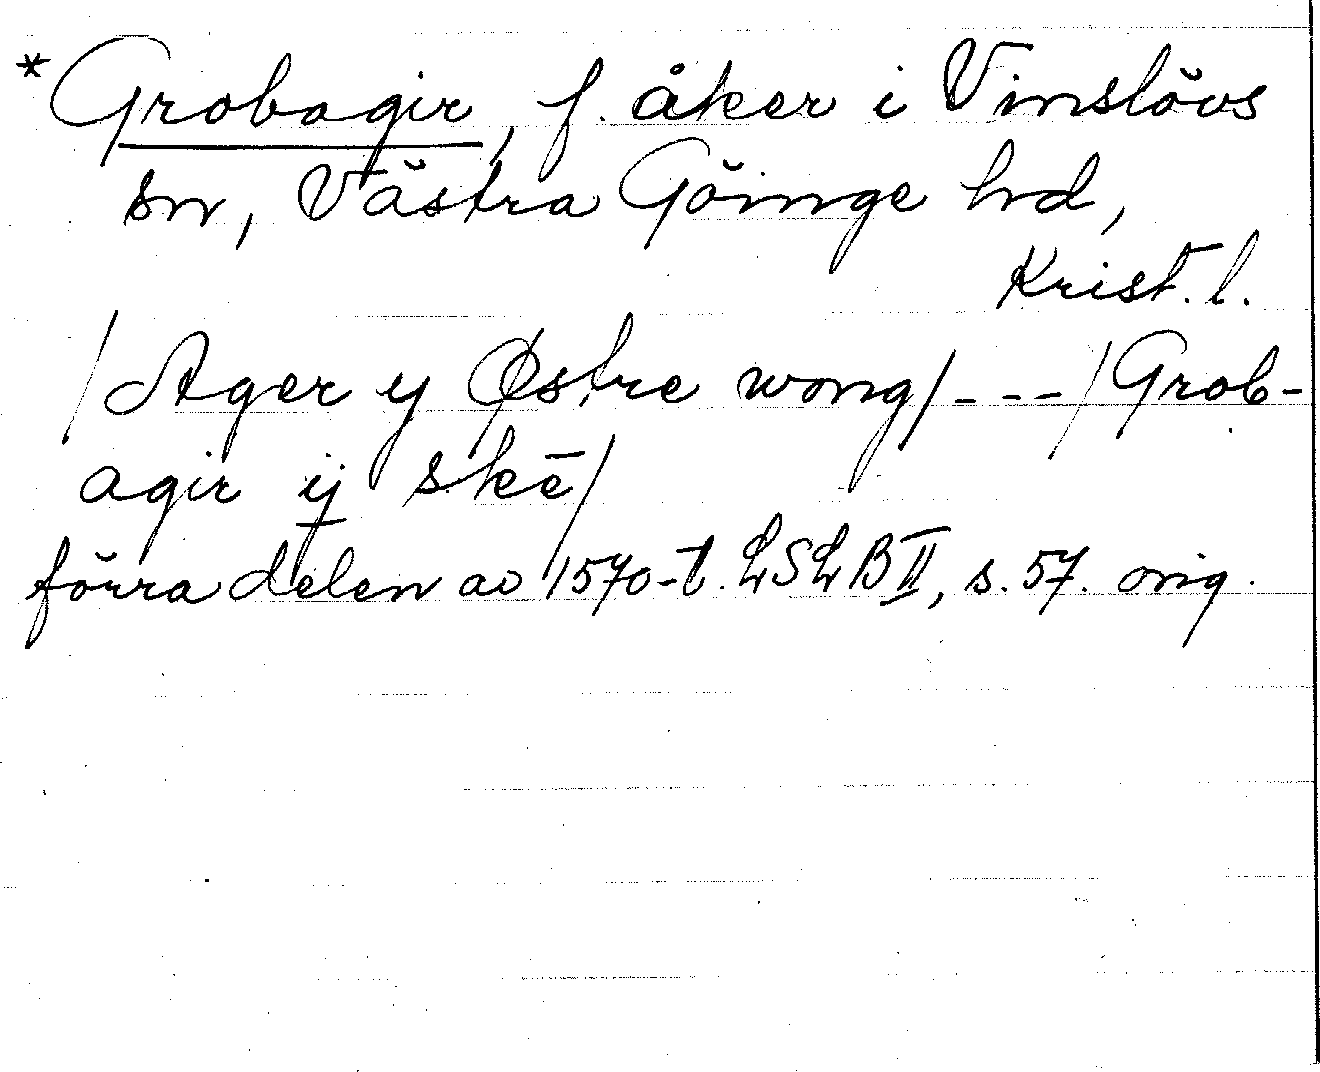 *Grobagir, f. åker i Vinslövs
sn, Västra Göinge hd,
Krist. l.
/Ager y Østre wong/ - - - /Grob-
agir ij skē/
förra delen av 1570-t. LSLB II, s. 57. orig.